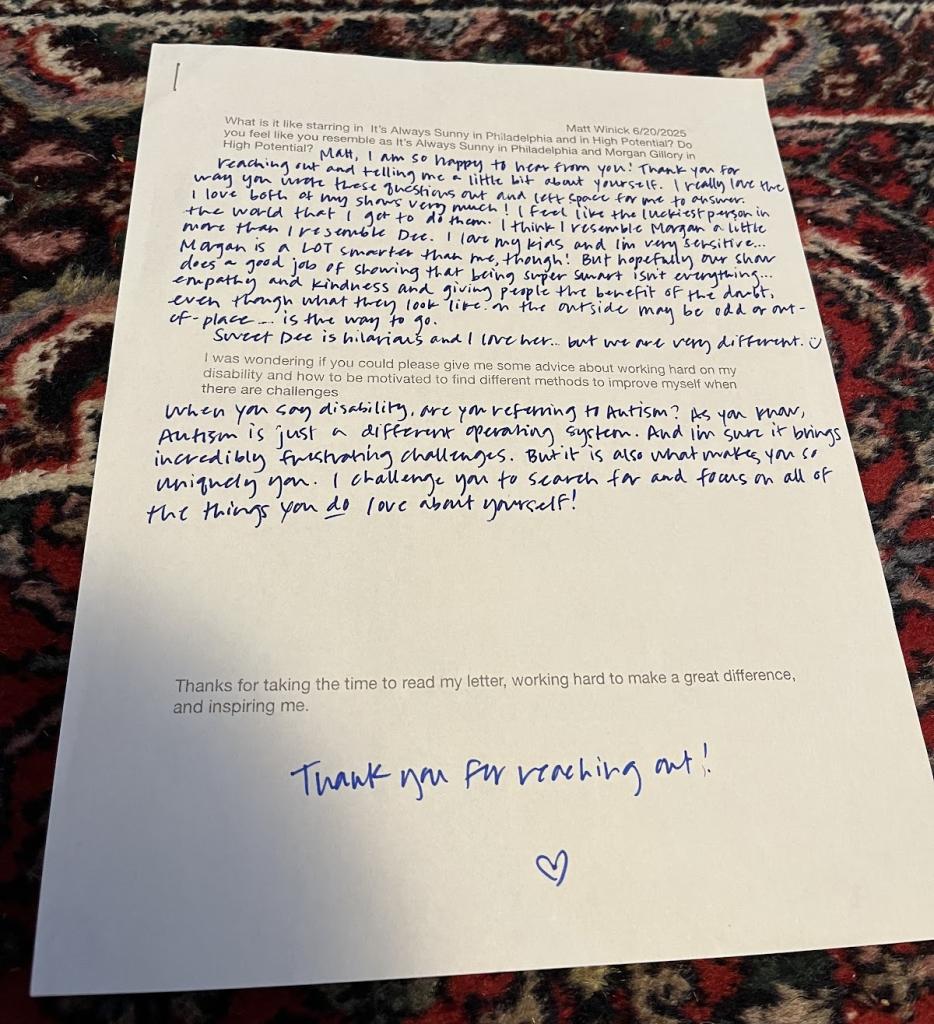 Matt Winick 6/20/2025
What is it like starring in It's Always Sunny in Philadelphia and in High Potential? Do
you feel like you resemble as It's Always Sunny in Philadelphia and Morgan Gillory in
High Potential? Matt, I am so happy to hear from you! Thank you for
reaching out and telling me a little bit about yourself. I really love the
way you wrote these questions out and left space for me to answer.
I love both of my shows very much! I feel like the luckiest person in
the world that I get to do them. I think I resemble Morgan a little
more than I resemble Dee. I love my kids and I'm very sensitive...
Morgan is a LOT smarter than me, though! But hopefully our show
does a good job of showing that being super smart isn't everything...
empathy and kindness and giving people the benefit of the doubt,
even though what they look like on the outside may be odd or out-
of-place... is the way to go.
Sweet Dee is hilarious and I love her... but we are very different. ☺
I was wondering if you could please give me some advice about working hard on my
disability and how to be motivated to find different methods to improve myself when
there are challenges
When you say disability, are you referring to Autism? As you know,
Autism is just a different operating system. And I'm sure it brings
incredibly frustrating challenges. But it is also what makes you so
uniquely you. I challenge you to search for and focus on all of
the things you do love about yourself!
Thanks for taking the time to read my letter, working hard to make a great difference,
and inspiring me.
Thank you for reaching out!
♡